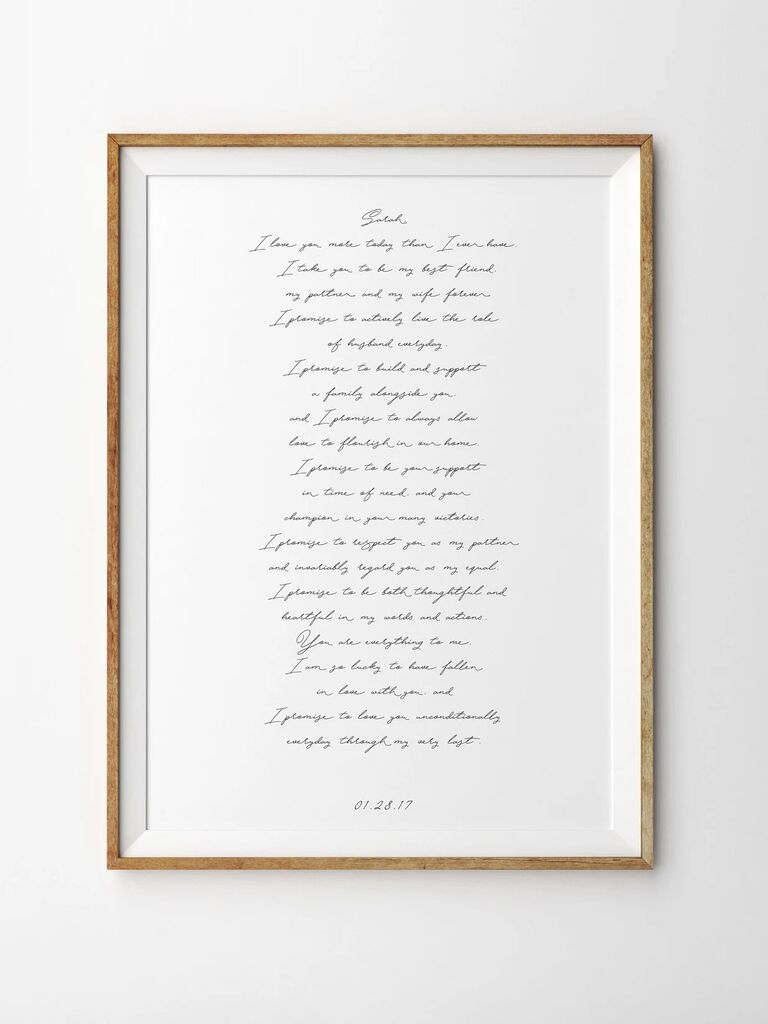 Sarah,
I love you more today than I ever have.
I take you to be my best friend,
my partner and my wife forever
I promise to actively live the role
of husband everyday.
I promise to build and support
a family alongside you,
and I promise to always allow
love to flourish in our home.
I promise to be your support
in time of need, and your
champion in your many victories.
I promise to respect you as my partner
and invariably regard you as my equal.
I promise to be both thoughtful and
heartful in my words and actions.
You are everything to me.
I am so lucky to have fallen
in love with you, and
I promise to love you unconditionally
everyday through my very last.
01.28.17